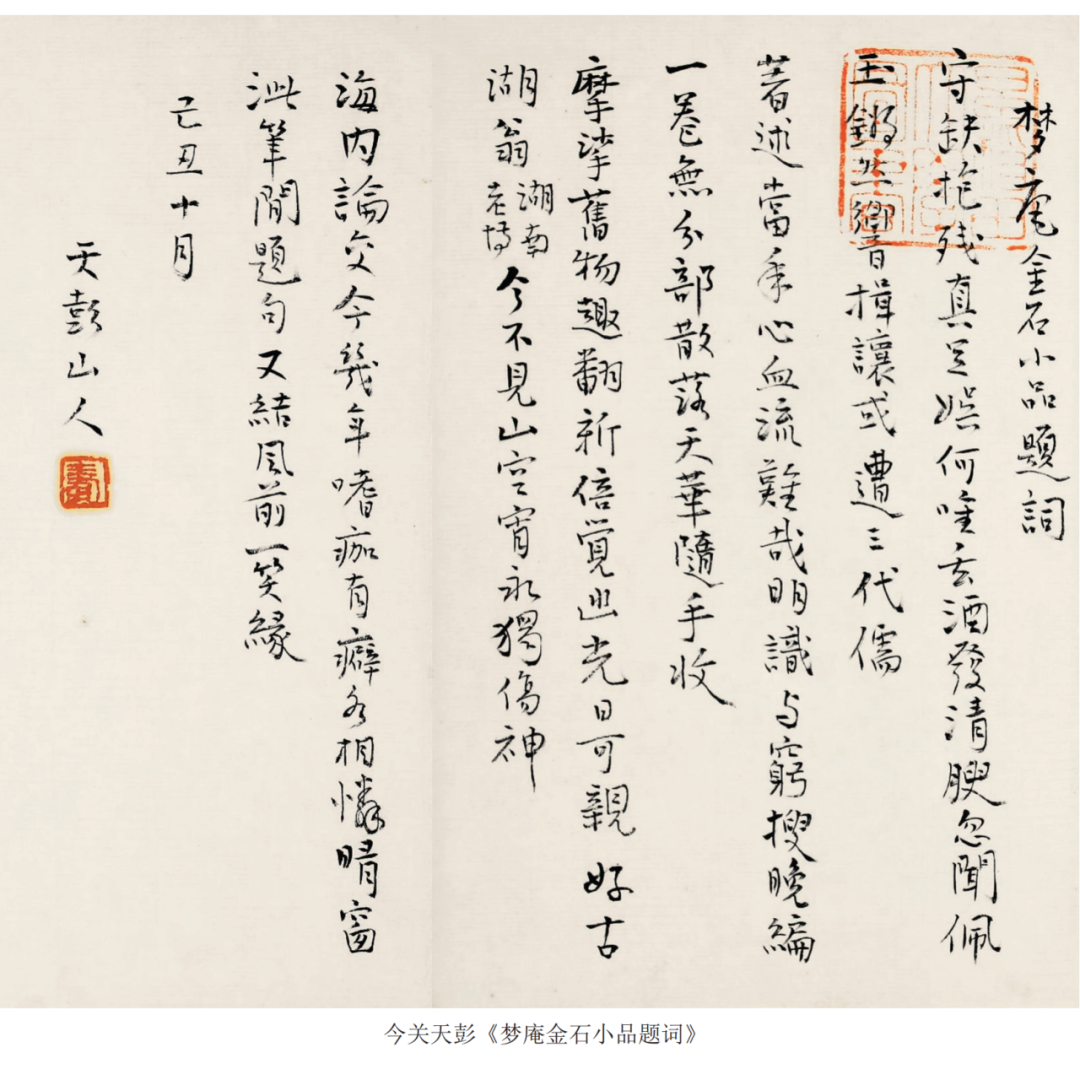 梦庵金石小品題詞
守缺抱残真足娯何唯玄酒發清腴忽聞佩
玉鏘然響揖讓或遭三代儒
著述當年心血流難哉明識与窮搜晚編
一卷無分部散落天華隨手收
摩挲舊物趣翻新倍覺幽光日可親好古
湖翁湖南老博今不見山空宵永獨傷神
海内論交今幾年嗜痂有癖各相憐晴窗
泚筆閒題句又結風前一笑緣
己丑十月
天彭山人
今关天彭《梦庵金石小品题词》